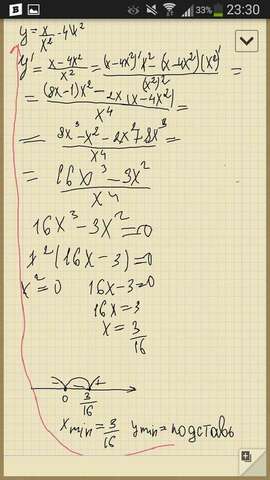 33% 23:30
y = x/x² - 4x²
y' = x-4x²/x² = (x-4x²)'x² - (x-4x²)(x²)'/(x²)² =
= (8x-1)x² - 2x(x-4x²)/x⁴ =
= 8x³-x²-2x²+8x³/x⁴ =
= 16x³-3x²/x⁴
16x³-3x²=0
x²(16x-3)=0
x²=0 16x-3=0
16x=3
x=3/16
0 3/16
x min = 3/16 y min = подставь